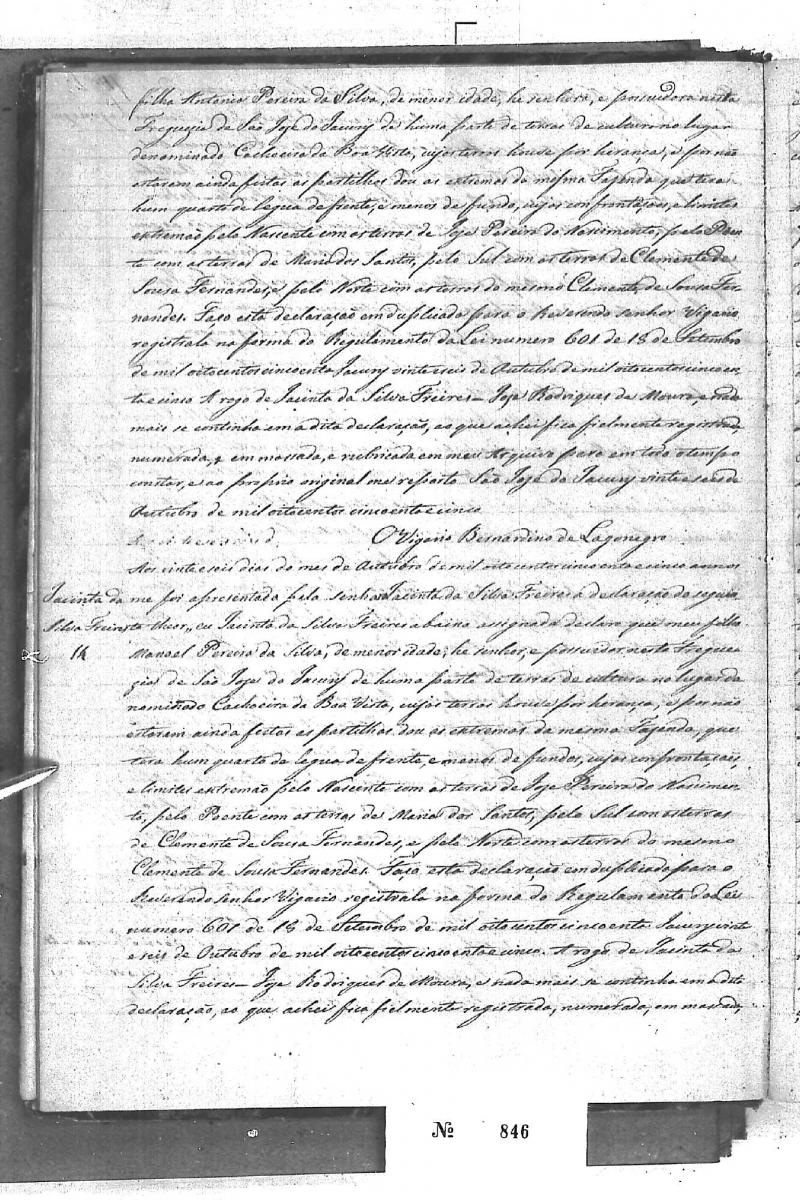 filha Antonia Pereira da Silva, de menor idade, he senhora, e possuidora nesta
Freguezia de São Joze do Jacury de huma parte de terras de cultura no lugar
denominado Cachoeira da Boa Vista, cujas terras houve por herança, e por não
estarem ainda feitas as partilhas dou as extremas da mesma Fazenda que tera
hum quarto de legua de frente, e menos de fundo, cujas confrontaçoes, e limites
extremão pelo Nascente com as terras de Joze Pereira do Nascimento, pelo Poen-
te com as terras de Maria dos Santos, pelo Sul com as terras de Clemente de
Sousa Fernandes, e pelo Norte com as terras do mesmo Clemente de Sousa Fer-
nandes. Faço esta declaração em duplicada para o Reverendo senhor Vigario
registrala na forma do Regulamento da Lei numero 601 de 18 de Setembro
de mil oitocentos cincoenta Jacury vinte seis de Outubro de mil oitocentos cincoen-
ta e cinco A rogo de Jacinta da Silva Freires - Joze Rodrigues de Moura, e nada
mais se continha em a dita declaração, ao que achei fica fielmente registrada,
numerada, e em massada, e rubricada em meu Arquivo para em todo o tempo
constar, e ao proprio original me reporto São Joze do Jacury vinte e seis de
Outubro de mil oitocentos cincoenta e cinco
O Vigario Bernardino de Lagonegro
Aos vinte e seis dias do mes de Outubro de mil oitocentos cincoenta e cinco annos
Jacinta da me foi apresentada pela senhora Jacinta da Silva Freires a declaração do seguin
Silva Freires te theor, eu Jacinta da Silva Freires abaixo assignada declaro que meu filho
14 Manoel Pereira da Silva, de menor idade, he senhor, e possuidor nesta Fregue-
zia de São Joze do Jacury de huma parte de terras de cultura no lugar de
nominado Cachoeira da Boa Vista, cujas terras houve por herança, e por não
estarem ainda feitas as partilhas dou as extremas da mesma Fazenda, que
tera hum quarto de legua de frente, e menos de fundos, cujas confrontaçoes
e limites extremão pelo Nascente com as terras de Joze Pereira do Nascimen-
to, pelo Poente com as terras de Maria dos Santos, pelo Sul com as terras
de Clemente de Sousa Fernandes, e pelo Norte com as terras do mesmo
Clemente de Sousa Fernandes. Faço esta declaração em duplicada para o
Reverendo senhor Vigario registrala na forma do Regulamento da Lei
numero 601 de 18 de Setembro de mil oitocentos cincoenta Jacury vinte
e seis de Outubro de mil oitocentos cincoenta e cinco. A rogo de Jacinta da
Silva Freires - Joze Rodrigues de Moura, e nada mais se continha em a dita
declaração, ao que achei fica fielmente registrada, numerada, em massada,
Nº 846